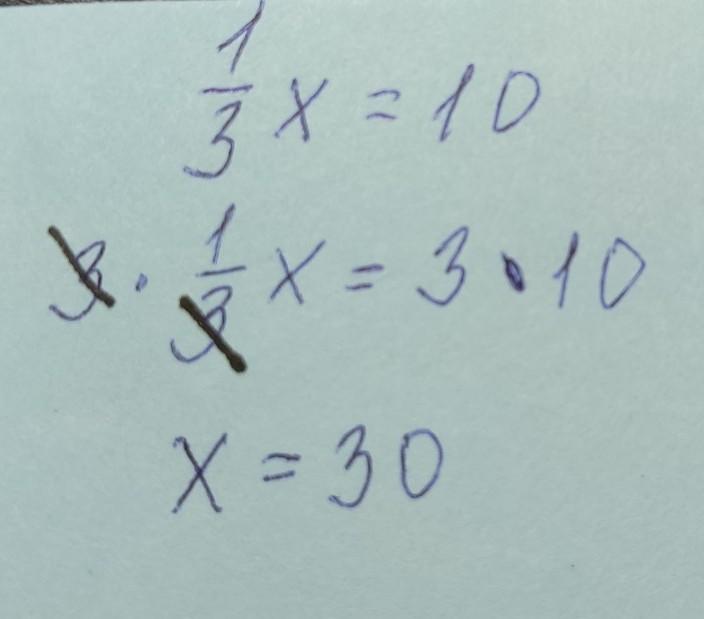 1/3 x = 10
3 · 1/3 x = 3 · 10
x = 30